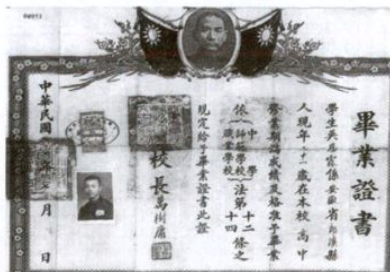 畢業證書
學生吳居係安徽省縣
人現年十歲在本校高中
業期滿成績及格准予畢業
依 中學 師範學校 職業學校 法第十二 十四 條之
規定給予畢業證書此證
校長樹
中華民國 年 月 日